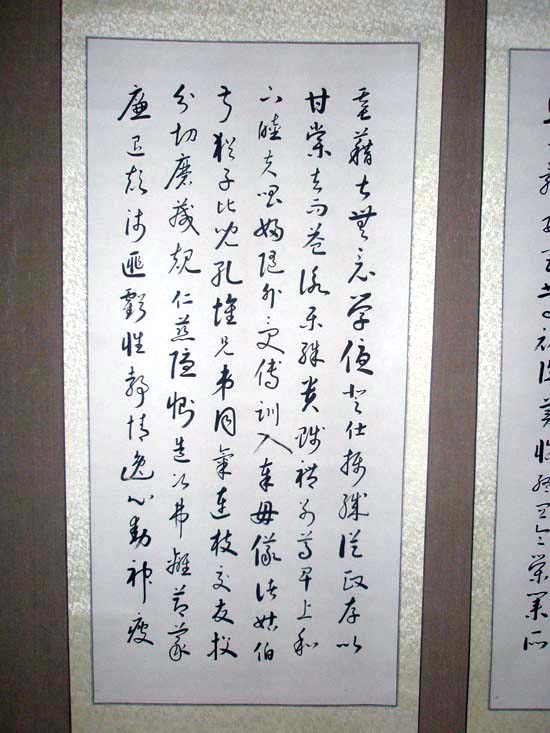 辭安定篤初誠美慎終宜令榮業所
基藉甚無竟学優登仕攝職從政存以
甘棠去而益詠樂殊貴賤禮別尊卑上和
下睦夫唱婦隨外受傅訓入奉母儀諸姑伯
叔猶子比兒孔懷兄弟同氣連枝交友投
分切磨箴規仁慈隱惻造次弗離節義
廉退顛沛匪虧性靜情逸心動神疲